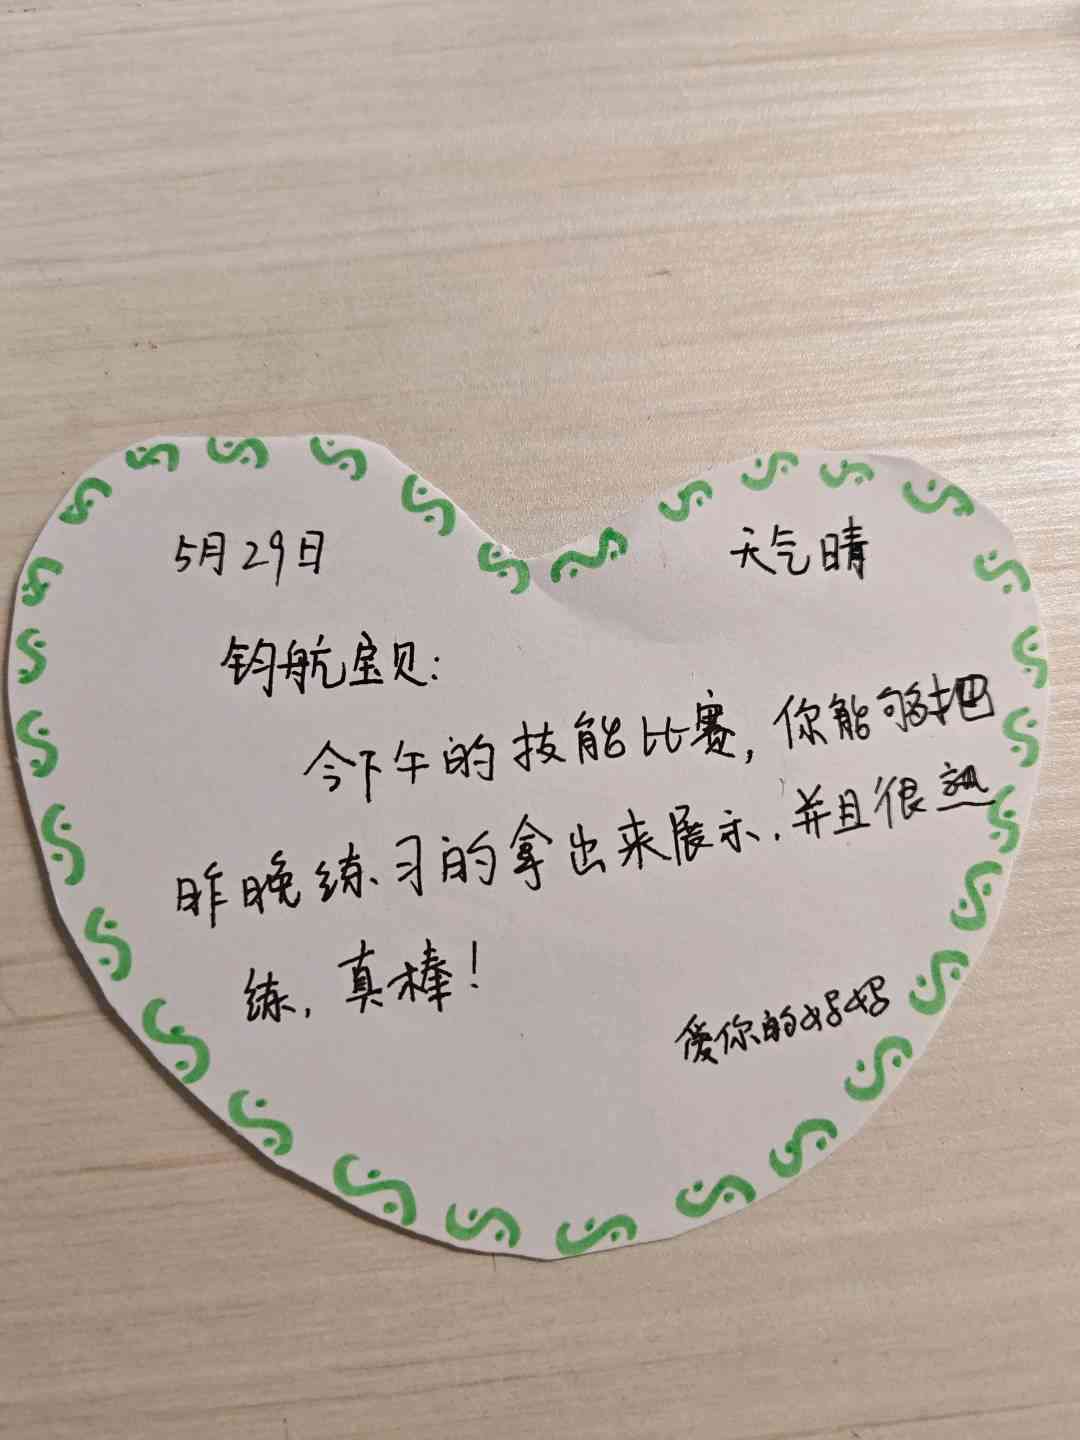 5月29日 天气晴
钧航宝贝:
今下午的技能比赛,你能够把
昨晚练习的拿出来展示,并且很熟
练,真棒!
爱你的妈妈